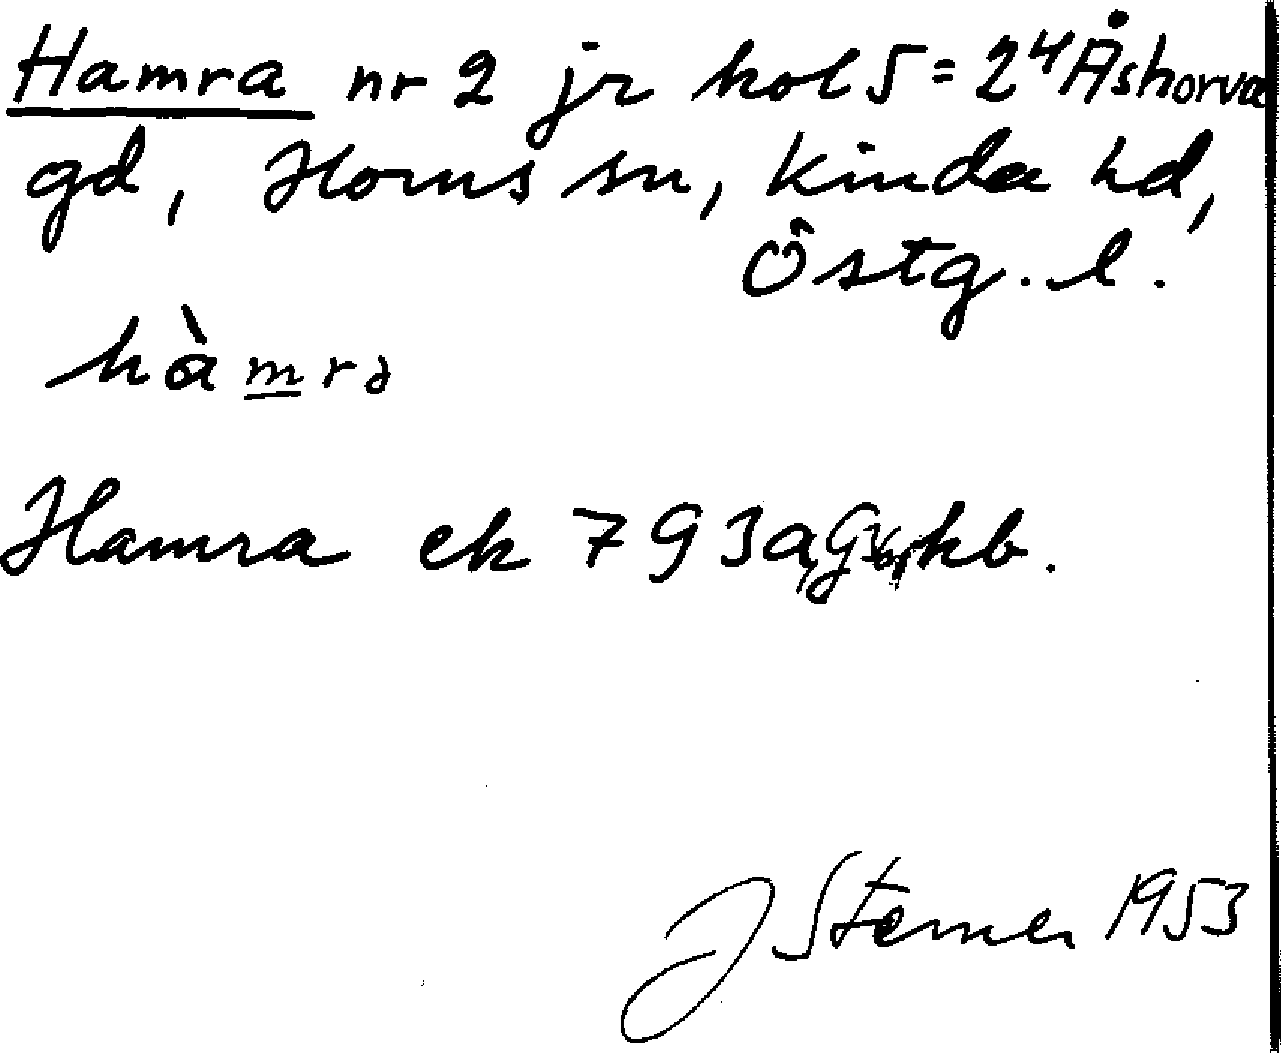 Hamra nr 2 jr kol 5 = 2⁴ Åshorva
gd, Horns sn, Kinda hd,
Östg. l.
hàmra
Hamra ek 7 G 3a, Gxr, kb.
J Sterner 1953